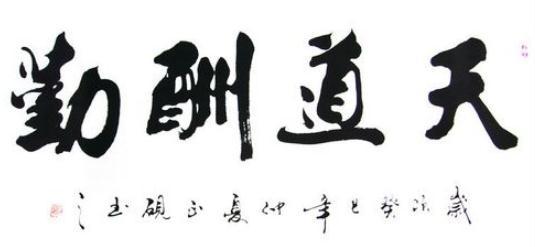 天道酬勤
岁次癸巳年仲夏正砚书